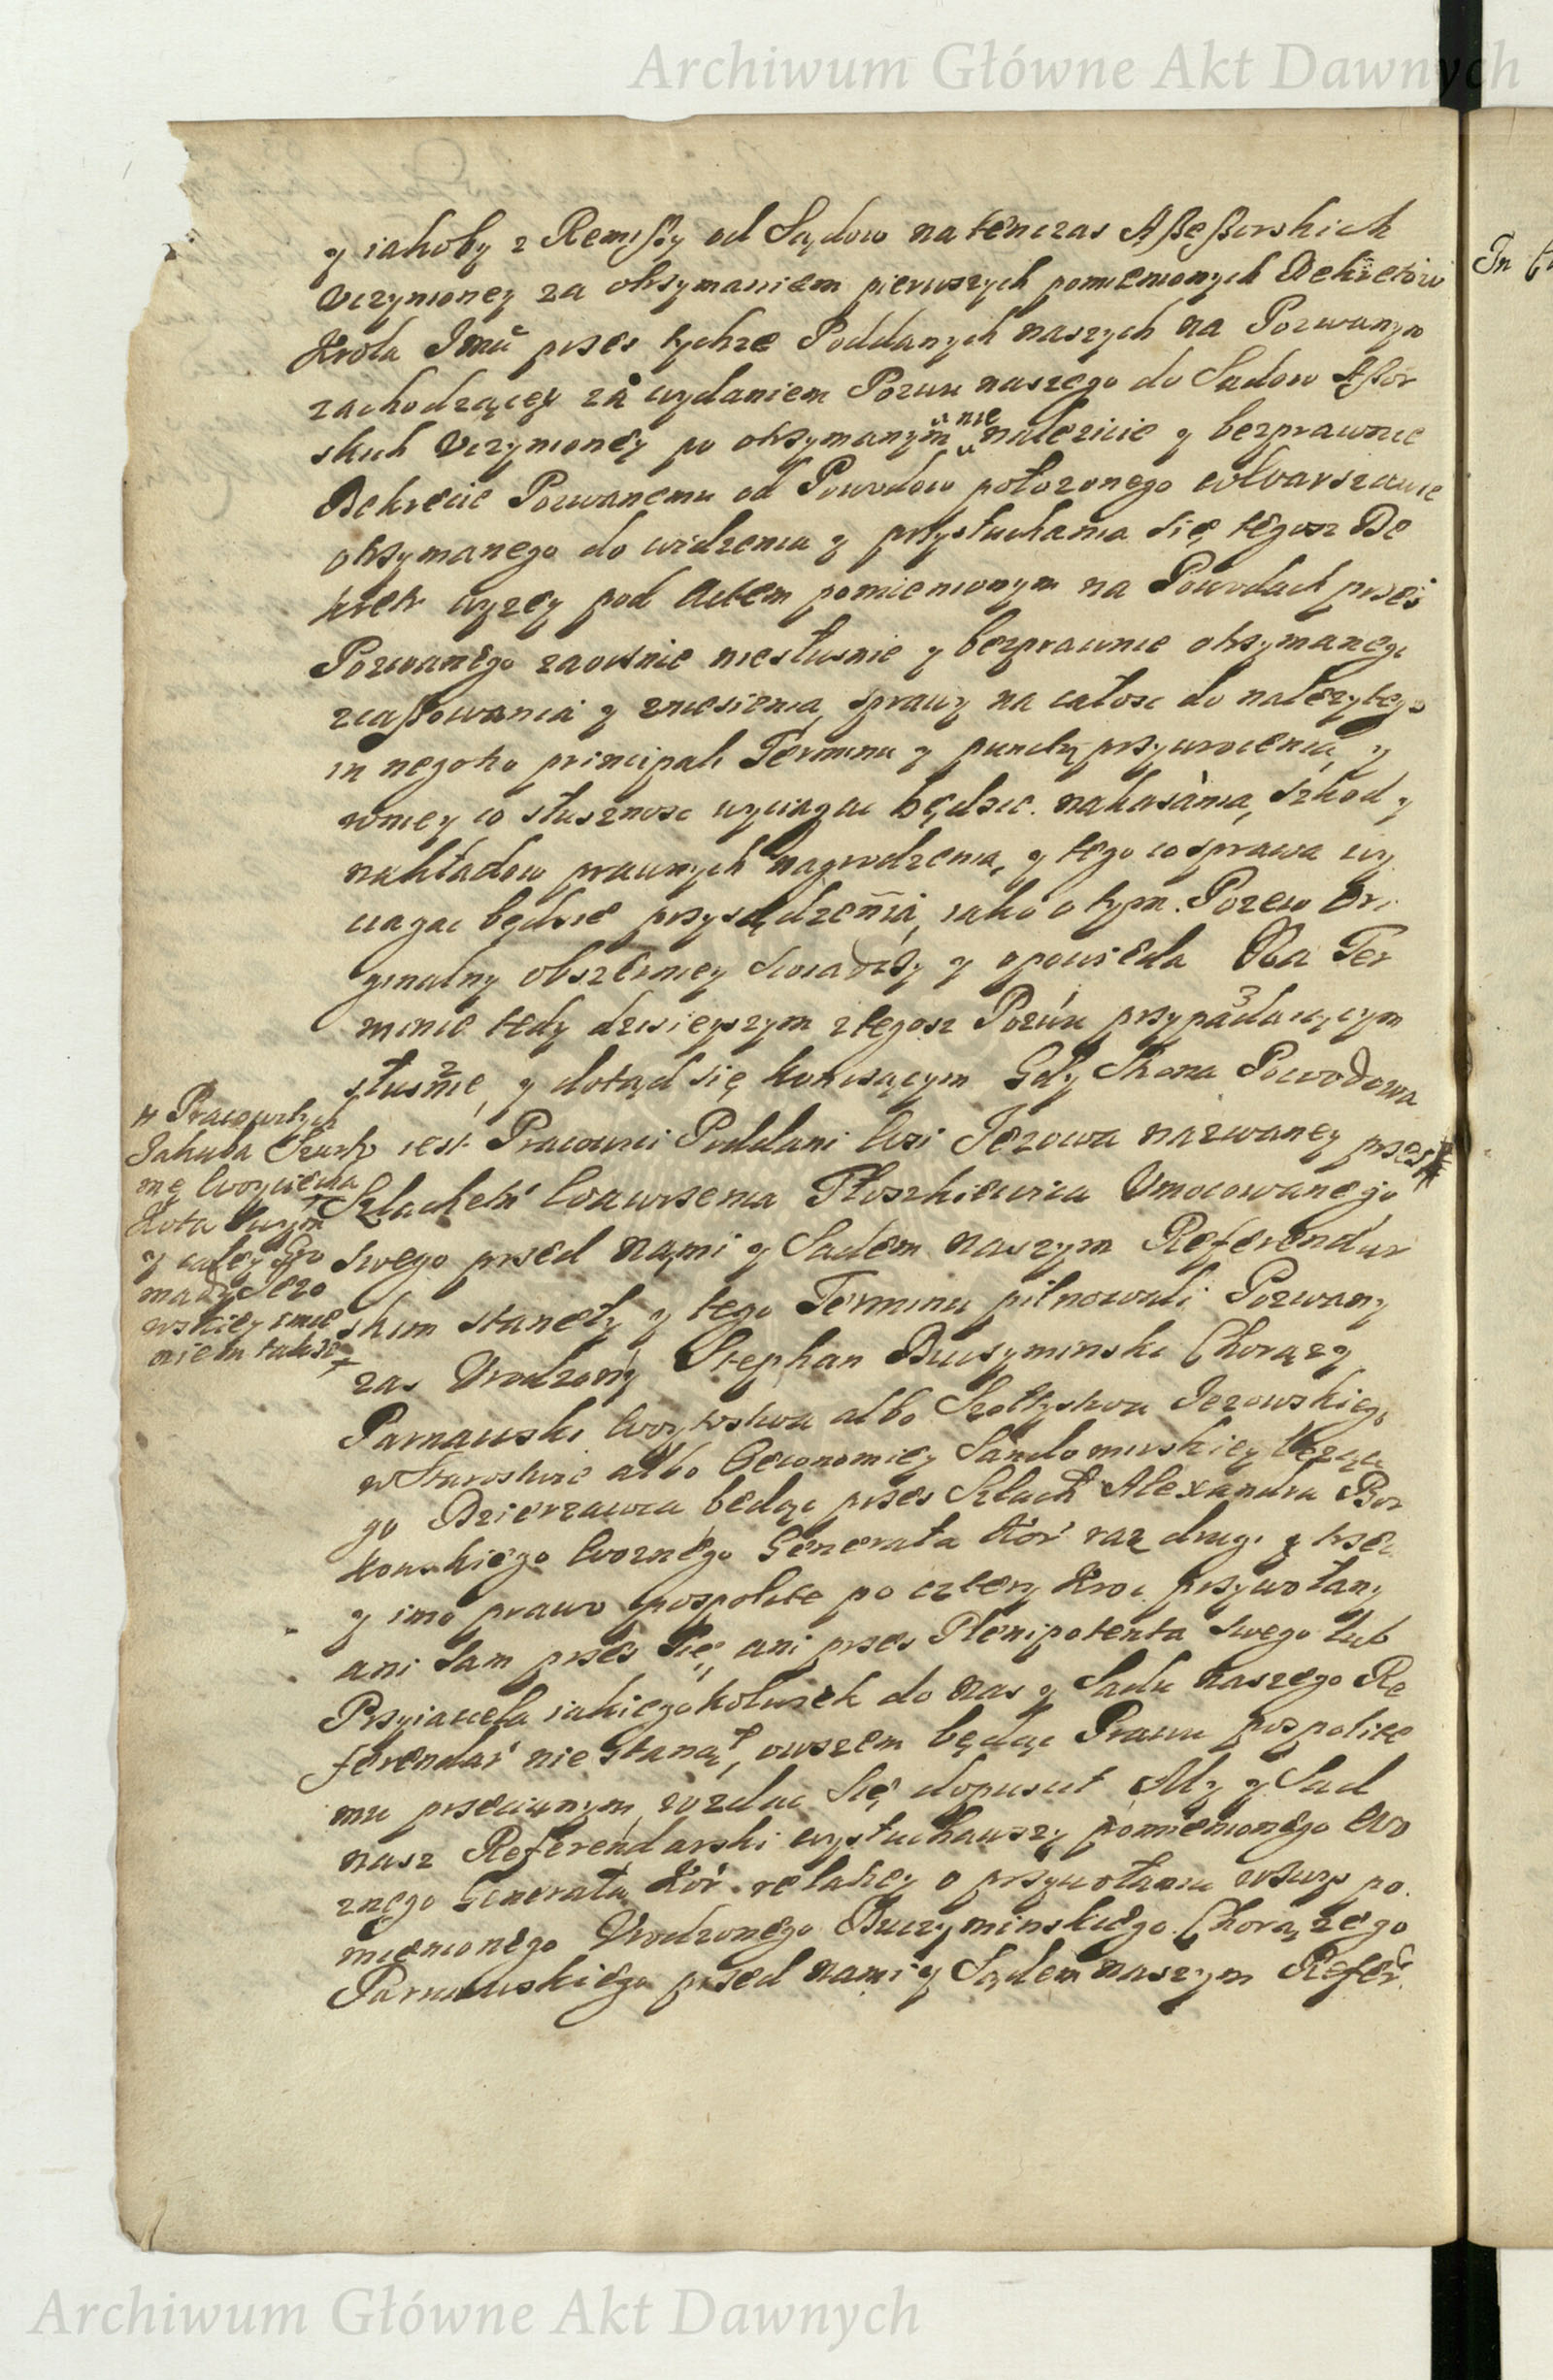 Archiwum Główne Akt Dawnych
y iakoby z Remißy od Sądow na tenczas Aßeßorskich
Vczynioney za otrzymaniem pierwszych pomienionych Dekretow
Krola Jmci przes tychze Poddanych naszych na Pozwanym
zachodzącey za wydaniem Pozwu naszego do Sadow Aßor
skich Vczynioney po otrzymanym nie nalezicie y bezprawnie
Dekrecie Pozwanemu od Powodow połozonego w Warszawie
otrzymanego do widzenia y przysłuchania się tegosz De
kretu wyzey pod Actem pomienionym na Powodach przes
Pozwanego zaocznie niesłusnie y bezprawnie otrzymanego
zcaßowania y zniesienia, sprawy na całosc do nalezytego
in negotio principali Terminu y punctu przywrocenia, y
wniey co słusznosc wyciągac będzie nakasania, szkod y
nakładow prawnych nagrodzenia, y tego co sprawa wy
ciagac będzie przysądzenia, iako o tym Pozew Ori
ginalny obszerniey swiadczy y opowieda Na Ter
minie tedy dzisieyszym ztegosz Pozwu przypadaiącym
słusnie, y dotąd się konczącym Gdy Strona Powodowa
iest Pracowici Poddani Wsi Jezowa nazwaney przes
Szlachetn Wawrzenca Płoszkiewica Vmocowanego
swego przed nami y Sadem naszym Referendar
skim stanęły y tego Terminu pilnowali Pozwany
zas Vrodzony Stephan Buczyminski Chorązy
Parnawski Woytostwa albo Szołtystwa Jezowskiego
w Starostwie albo Oeconomiey Sandomirskiey lezące
go Dzierzawca będąc przes Szlach Alexandra Bor
kowskiego Woznego Generała Kor raz drugi y trzeci
y imo prawo pospolite po cztery kroc przywołany
ani sam przes się, ani przes Plenipotenta swego lub
Przyiaciela iakiegokolwiek do nas y Sadu naszego Re
ferendar nie stanął, owszem będąc Prawu pospolite
mu przeciwnym, wzdac się dopuscił My y Sad
nasz Referendarski wysłuchawszy pomienionego Wo
znego Generała Kor relatiey o przywołaniu wzwysz po
mienionego Vrodzonego Buczyminskiego Chorązego
Parnawskiego przed nami y Sądem naszym Refer
# Pracowitych
Jakuba
mę Woyciecha
Kota
y całey Gro
mady Jezo
wskiey imie
niem takze
In
Archiwum Główne Akt Dawnych